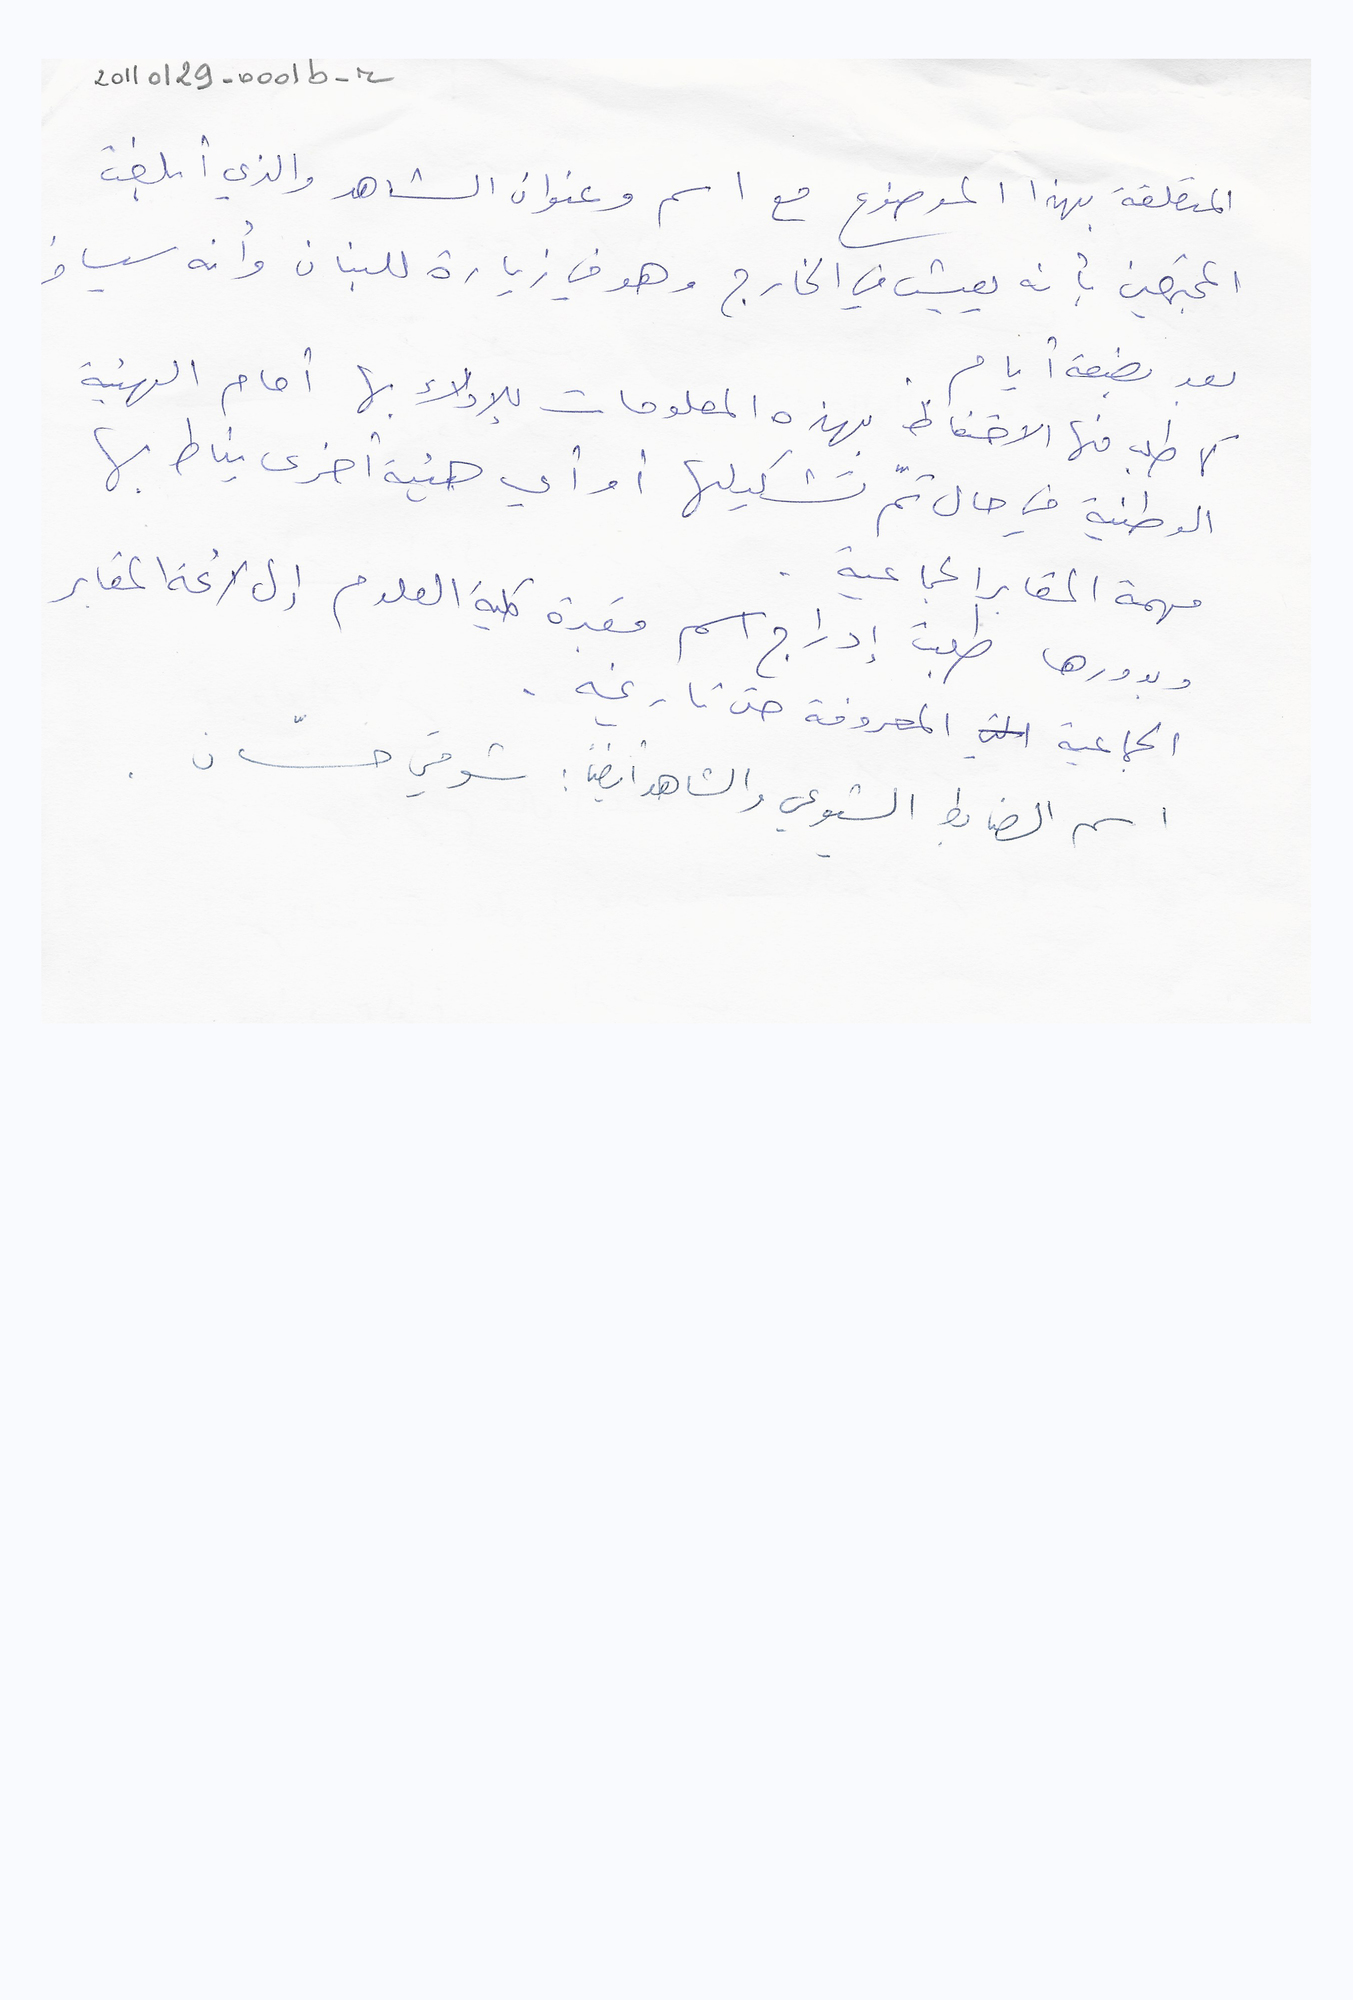 20110129-0001b-r
المتعلقة بهذا الموضوع مع اسم وعنوان الشاهد والذي أبلغت
المجتمعين بأنه يعيش في الخارج وهو في زيارة للبنان وأنه سيسافر
بعد بضعة أيام.
كما طلب منها الاحتفاظ بهذه المعلومات للإدلاء بها أمام الهيئة
الوطنية في حال تمّ تشكيلها أو أي هيئة أخرى يناط بها
مهمة المقابر الجماعية.
وبدورها طلبت إدراج اسم مقبرة كلية العلوم إلى لائحة المقابر
الجماعية التي المعروفة حتى تاريخه.
اسم الضابط الشيوعي والشاهد أيضاً: شوقي حسّان.